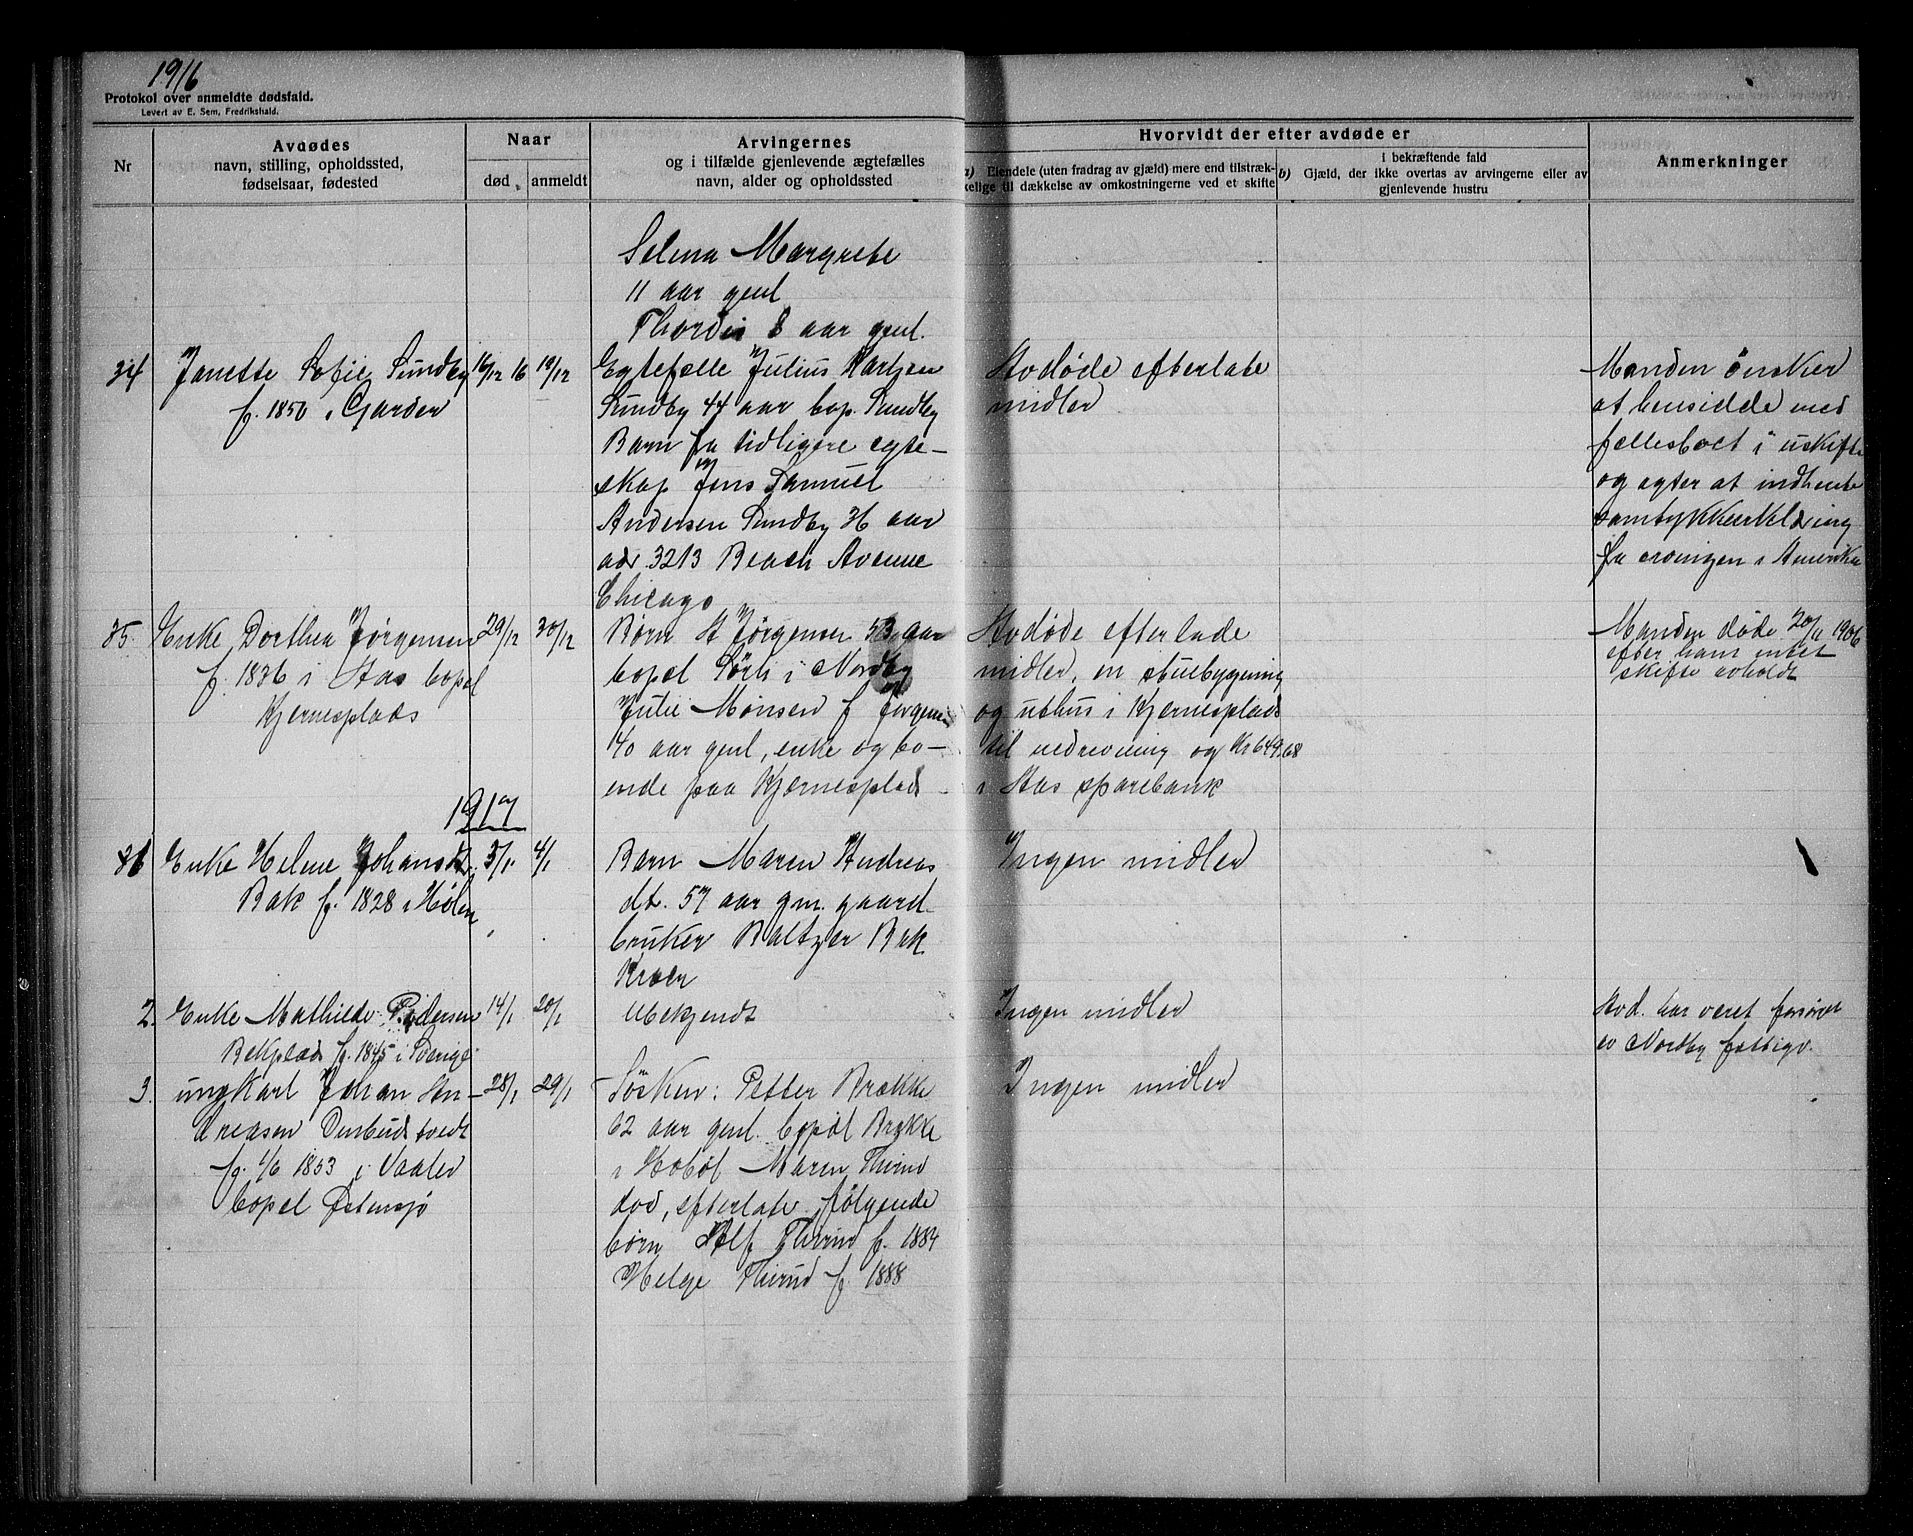 1916
Protokol over anmeldte dødsfald.
Levert av E. Sem, Fredrikshald.
Nr
Avdødes
navn, stilling, opholdssted,
fødselsaar, fødested
Naar
død
anmeldt
Arvingernes
og i tilfælde gjenlevende ægtefælles
navn, alder og opholdssted
Hvorvidt der efter avdøde er
a) Eiendele (uten fradrag av gjæld) mere end tilstræk-
kelige til dækkelse av omkostningerne ved et skifte
i bekræftende fald
b) Gjæld, der ikke overtas av arvingerne eller av
gjenlevende hustru
Anmerkninger
Selma Margrete
11 aar geml
Thordis 8 aar geml.
34 Janette Sofie Sundby 16/12 16 19/12
f. 1850 i Garder
Egtefælle Julius
Sundby 44 aar bop. Sundby
Barn fra tidligere egte-
skap Jens Samuel
Andersen Sundby 36 aar
adr 3213 Beach Avenue
Chicago
Avdøde efterlate
midler
Manden ønsker
at hensidde med
fællesboet i uskifte
og agter at indhente
samtykkeerklæring
fra arvingen i Amerika
35. Enke Dorthea Jørgensen 29/12 30/12
f. 1836 i Aas bopel
Kjernesplads
Børn A Jørgensen 53 aar
bopel Sørli i Nordby
Julie Monsen f Jørgensen
40 aar geml, enke og bo-
ende paa Kjærnesplads
Avdøde efterlade
midler, en stuebygning
og uthus i Kjernesplads
til nedrivning og Kr 649.68
i Aas sparebank
Manden døde 20/11 1906
efter ham intet
skifte avholdt
1917
Enke Helene Johansdt. 3/1 4/1
Bak f. 1828 i Hølen
Barn Maren Andreas
dt. 57 aar gm. gaard
bruker Baltzer Bak
Kroer
Ingen midler
2. Enke Mathilde Pedersen 14/1 20/1
Bekplads f. 1845 i Sverige
Ubekjendt
Ingen midler
Avd. har været forsørget
av Nordby fattigv.
3. ungkarl Johan An- 28/1 29/1
dreasen
f. 1/6 1853 i Vaaler
bopel Østensjø
Søsken: Petter Brække
62 aar geml. bopel Brække
i Hobøl Maren Thirud
død, efterlate følgende
børn Alf Thirud f. 1884
Helge Thirud f 1888
Ingen midler